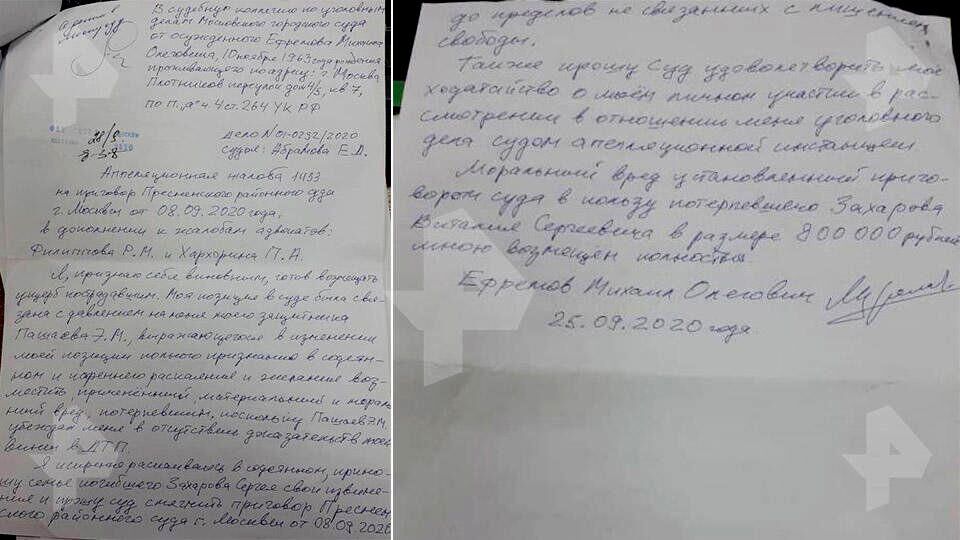 В судебную коллегию по уголовным
делам Московского городского суда
от осужденного Ефремова Михаила
Олеговича, 10 ноября 1963 года рождения
проживающего по адресу: г. Москва
Плотников переулок дом 4/5, кв 7,
по п. „а" ч 4 ст. 264 УК РФ
28/9
3-58
дело № 01-0232/2020
судья: Абрамова Е.Д.
Аппеляционная жалоба 1453
на приговор Пресненского районного суда
г. Москвы от 08.09.2020 года,
в дополнении к жалобам адвокатов:
Филиппова Р.М. и Хархорина П.А.
Я, признаю себя виновным, готов возмещать
ущерб пострадавшим. Моя позиция в суде была свя-
зана с давлением на меня моего защитника
Пашаева Э.М., выражающегося в изменении
моей позиции полного признания в содеян-
ном и искреннего раскаяния и желания воз-
местить, причинённый, материальный и мораль-
ный вред, потерпевшим, поскольку Пашаев Э.М.
убеждал меня в отсутствии доказательств моей
вины в ДТП.
Я искренне раскаиваюсь в содеянном, прино-
шу семье погибшего Захарова Сергея свои извине-
ния и прошу суд смягчить приговор Преснен-
ского районного суда г. Москвы от 08.09.2020
до пределов не связанных с лишением
свободы.
Также прошу суд удовлетворить моё
ходатайство о моём личном участии в рас-
смотрении в отношении меня уголовного
дела судом апелляционной инстанции.
Моральный вред установленный приго-
вором суда в пользу потерпевшего Захарова
Виталия Сергеевича в размере 800 000 рублей
мною возмещён полностью.
Ефремов Михаил Олегович
25.09.2020 года.